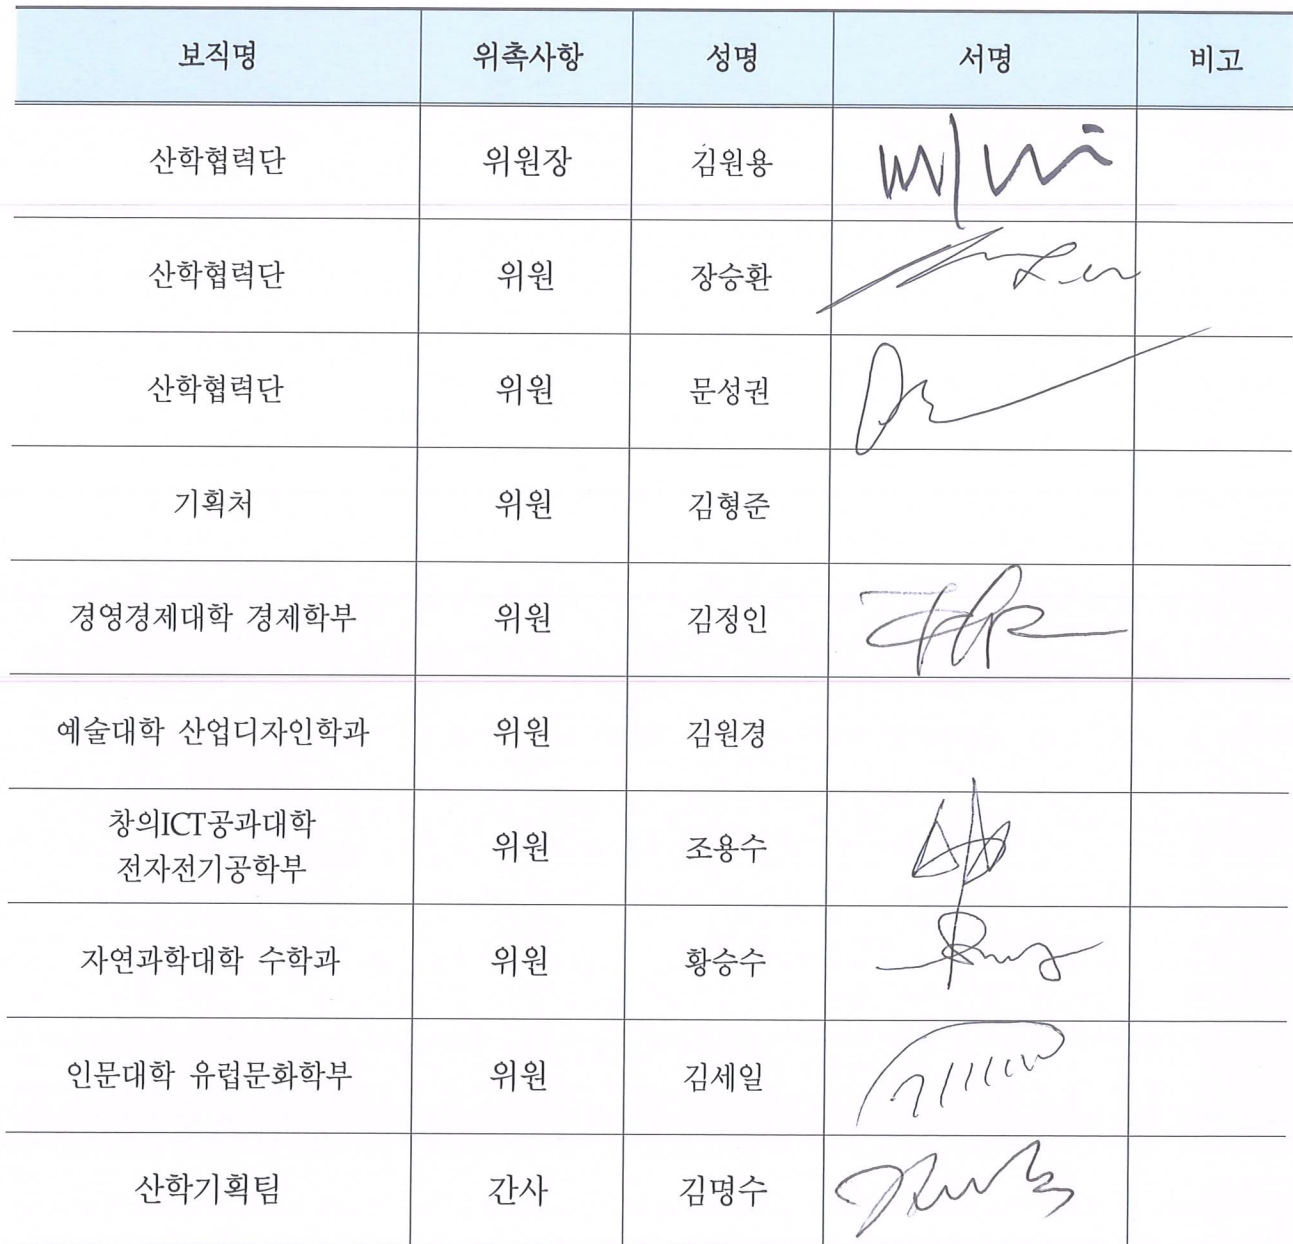 보직명 위촉사항 성명 서명 비고
산학협력단 위원장 김원용
산학협력단 위원 장승환
산학협력단 위원 문성권
기획처 위원 김형준
경영경제대학 경제학부 위원 김정인
예술대학 산업디자인학과 위원 김원경
창의ICT공과대학
전자전기공학부 위원 조용수
자연과학대학 수학과 위원 황승수
인문대학 유럽문화학부 위원 김세일
산학기획팀 간사 김명수